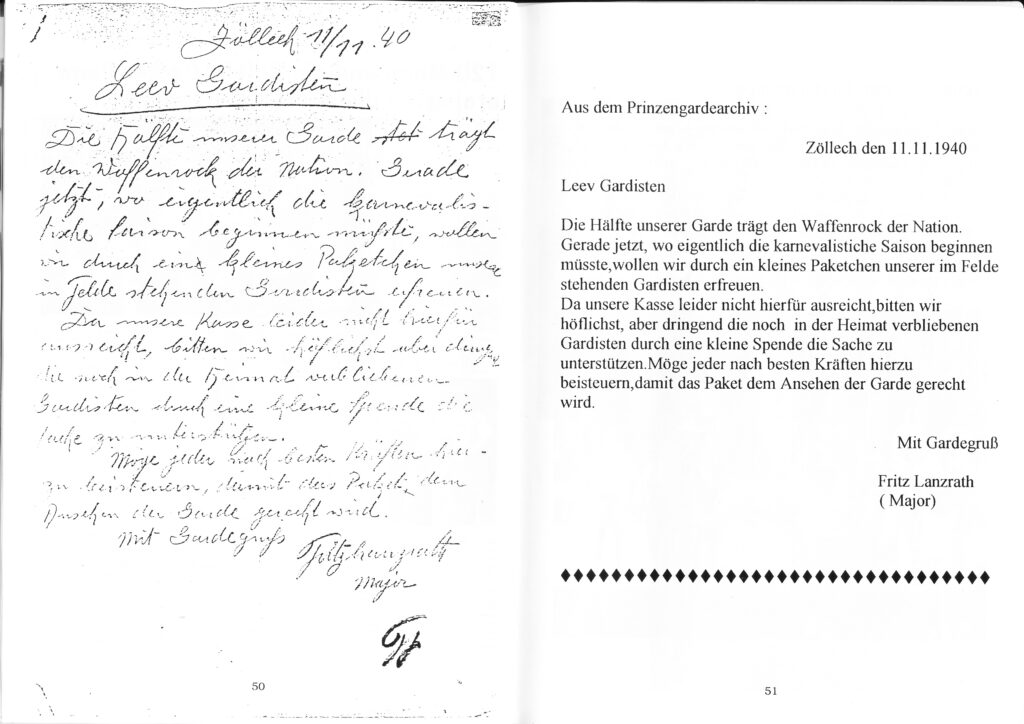 Zöllech 11/11.40
Leev Gardisten
Die Hälfte unserer Garde trägt
den Waffenrock der Nation. Gerade
jetzt, wo eigentlich die karnevalis-
tische Saison beginnen müßte, wollen
wir durch ein kleines Paketchen unsere
im Felde stehenden Gardisten erfreuen.
Da unsere Kasse leider nicht hierfür
ausreicht, bitten wir höflichst aber dringend
die noch in der Heimat verbliebenen
Gardisten durch eine kleine Spende die
Sache zu unterstützen.
Möge jeder nach besten Kräften hier-
zu beisteuern, damit das Paket dem
Ansehen der Garde gerecht wird.
Mit Gardegruß
Fritz Lanzrath
Major
50
Aus dem Prinzengardearchiv :
Zöllech den 11.11.1940
Leev Gardisten
Die Hälfte unserer Garde trägt den Waffenrock der Nation.
Gerade jetzt, wo eigentlich die karnevalistiche Saison beginnen
müsste,wollen wir durch ein kleines Paketchen unserer im Felde
stehenden Gardisten erfreuen.
Da unsere Kasse leider nicht hierfür ausreicht,bitten wir
höflichst, aber dringend die noch in der Heimat verbliebenen
Gardisten durch eine kleine Spende die Sache zu
unterstützen.Möge jeder nach besten Kräften hierzu
beisteuern,damit das Paket dem Ansehen der Garde gerecht
wird.
Mit Gardegruß
Fritz Lanzrath
( Major)
51